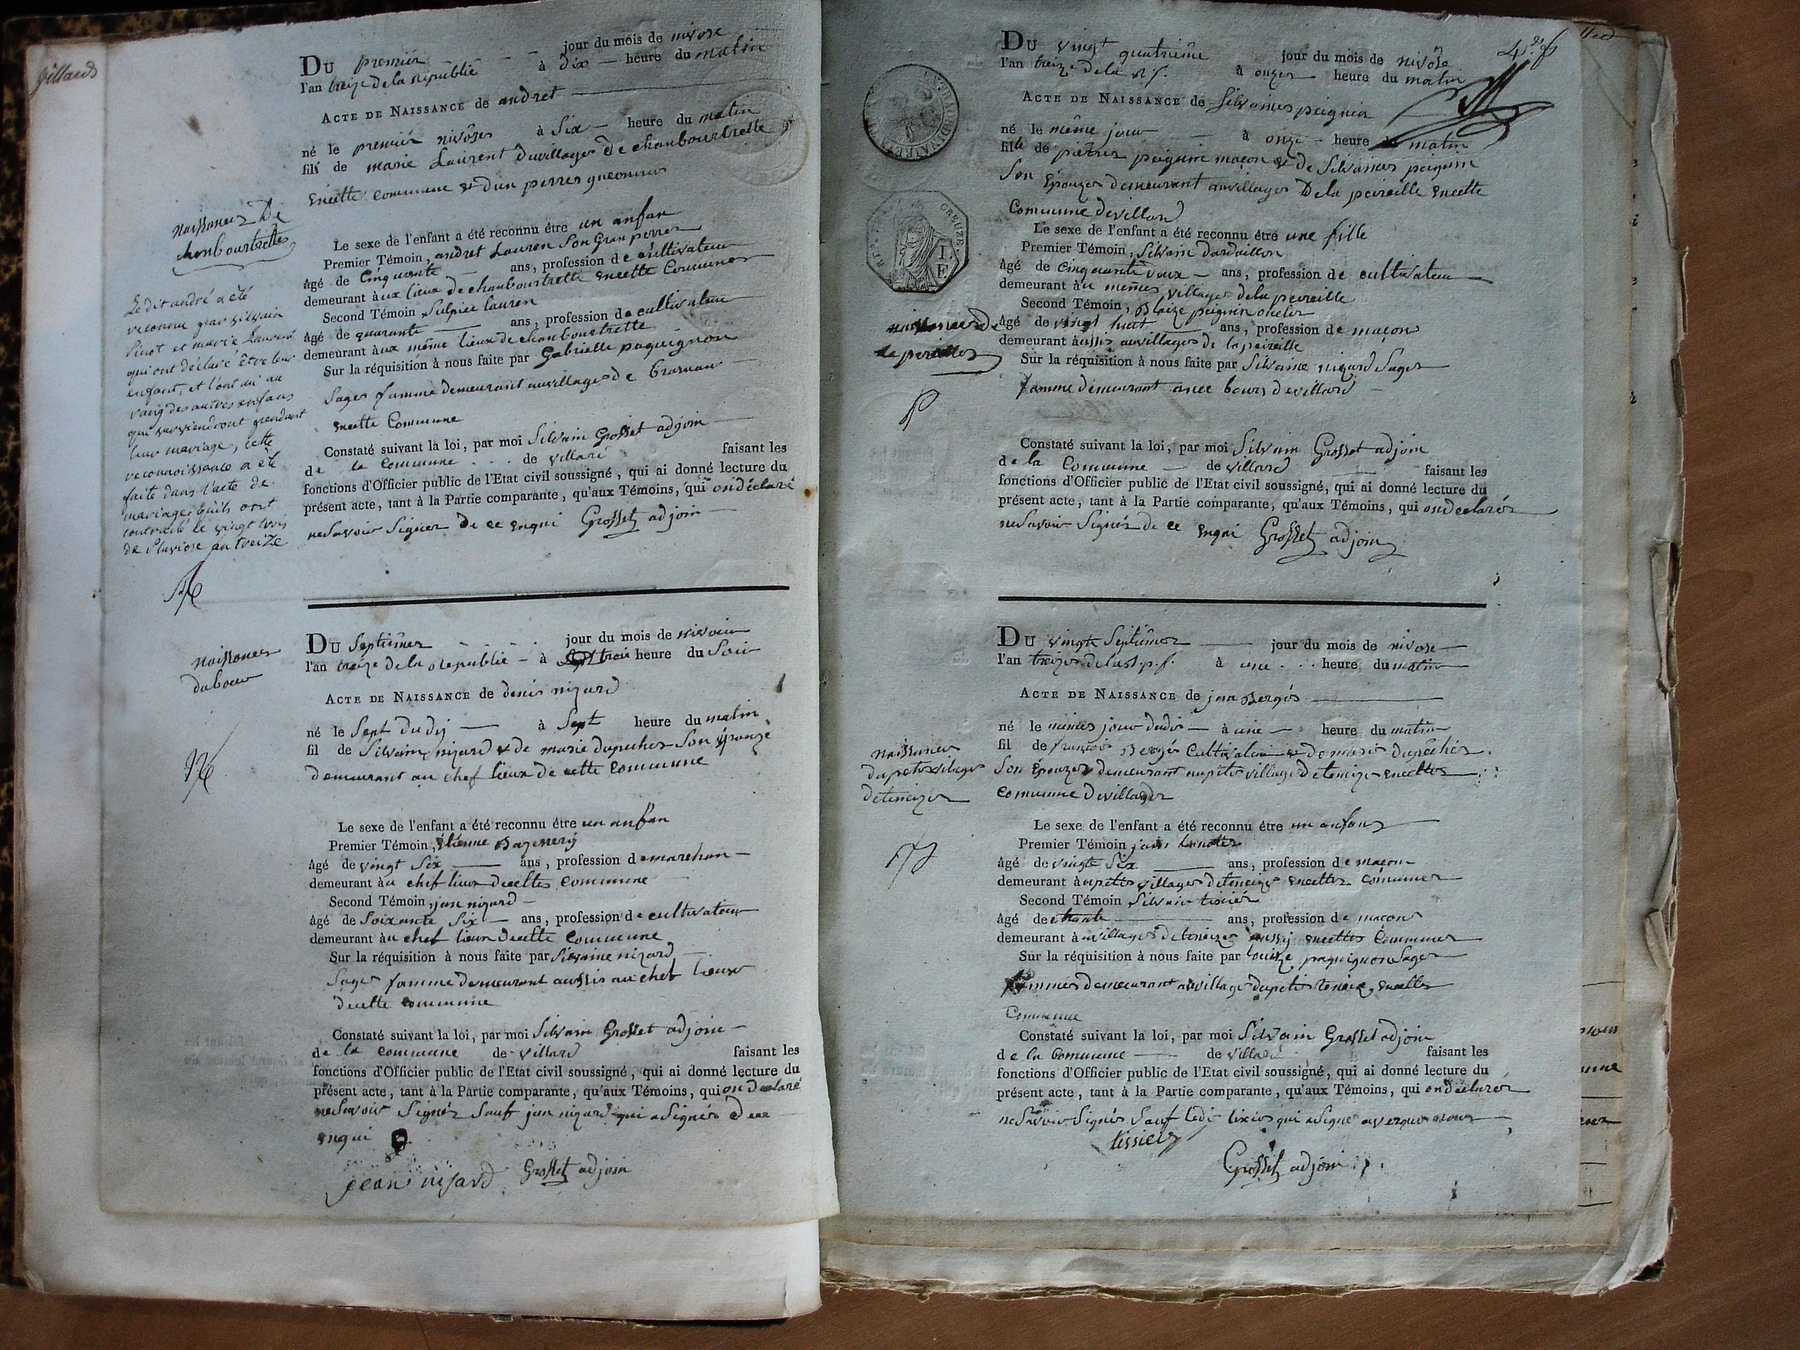 Villard
Du premier — — jour du mois de nivose
l'an treize de la républié à dix — heure du matin
Acte de Naissance de andret
né le premier nivôzes à Six — heure du matin
fils de marie Laurent du villages de chanbourtrette
encette commune & dun perres
naissances De
chonbourtrettes
Le sexe de l'enfant a été reconnu être un anfan
Premier Témoin, andret Lauren Son Gran perres
âgé de Cinquante — ans, profession de cultivateur
demeurant aux lieux de chanbourtrette encette Communes
Second Témoin Sulpice lauren
âgé de quarante — ans, profession de cultivateur
demeurant aux même lieux de chanbourtrette
Sur la réquisition à nous faite par Gabrielle paquignon
Sages famme demeurant au villages de
encette Commune
Constaté suivant la loi, par moi Silvain Grosset adjoin
de la Commune . . . de villard faisant les
fonctions d'Officier public de l'Etat civil soussigné, qui ai donné lecture du
présent acte, tant à la Partie comparante, qu'aux Témoins, qui ondéclaré
nesavoir Signer de ce enqui Grosset adjoin
Ledit andré a été
reconnu par silvain
Pinot et marie Laurent
qui ont déclaré être leur
enfant, et l'ont mi au
rang des autres enfans
qui surviendront pendant
leur mariage, cette
reconnoissance a été
faite dans l'acte de
mariage quils ont
contracté le vingt trois
de Pluviose an treize
naissances
dubour
Du Septiêmes jour du mois de nivoiu
l'an treize de la républié — à trois heure du Soir
Acte de Naissance de denis nizard
né le Sept dudij — à Sept heure du matin
fil de Silvain nizard & de marie dupuches Son épouze
demeurant au chef lieux de cette commune
Le sexe de l'enfant a été reconnu être un anfan
Premier Témoin, étienne
âgé de vingt Six — ans, profession de marehan
demeurant au chef lieux decette commune
Second Témoin, jan nizard —
âgé de Soixante Six — ans, profession de cultivateur
demeurant au chef lieux decette commune
Sur la réquisition à nous faite par Silvaine nizard
Sages famme demeurant aussis au chef lieux
decette commune
Constaté suivant la loi, par moi Silvain Grosset adjoin
de la commune de villard faisant les
fonctions d'Officier public de l'Etat civil soussigné, qui ai donné lecture du
présent acte, tant à la Partie comparante, qu'aux Témoins, qui ondeclaré
nesavoir Signér Sauf jan nizard qui a Signér dece
enqui
jean nisard Grosset adjoin
Du vingt quatriême jour du mois de nivôse
l'an treize de la à onzes heure du matin
Acte de Naissance de Silvaines peignin
né le même jour — à onze — heure du matin
fille de pietres peignin maçon & de Silvaines peignin
Son Epouzes demeurant au villages De la peireille encette
Commune devillard
Le sexe de l'enfant a été reconnu être une fille
Premier Témoin, Silvain dardaillon
âgé de cinquante doux — ans, profession de cultivateur
demeurant au mêmes villages dela peireille
Second Témoin, Blaize peignin
âgé de vingt huit — ans, profession de maçon
demeurant aussis au villages de la peireille
Sur la réquisition à nous faite par Silvaine nizard Sages
famme demeurant ance bourg devillard
CREUZE.
naissances de
Constaté suivant la loi, par moi Silvain Grosset adjoin
de la Commune — de villard faisant les
fonctions d'Officier public de l'Etat civil soussigné, qui ai donné lecture du
présent acte, tant à la Partie comparante, qu'aux Témoins, qui ondeclarés
nesavoir Signér de ce enqui Grosset adjoin
Du vingte Septiêmes jour du mois de nivose
l'an treizes à une . . . heure du matin
Acte de Naissance de jan Bergés
né le mêmes jour dudi — à une — heure du matin
fil de françois Berges Cultivateur & de marie Dupechés
Son épouzes demeurant au petit village detenezes encettes
commune devillardz
naissances
du petit vilages
detenezes
Le sexe de l'enfant a été reconnu être un anfan
Premier Témoin jan
âgé de vingte Six ans, profession de maçon
demeurant au petit villages detenezes encettes commune
Second Témoin Silvain tixier
âgé de trante ans, profession de maçons
demeurant au villages detenezes aussy encettes Commune
Sur la réquisition à nous faite par louize paquignon Sages
fammes demeurant au village du petit teneze, encettes
Commune
Constaté suivant la loi, par moi Silvain Grosset adjoin
de la Commune — de villard faisant les
fonctions d'Officier public de l'Etat civil soussigné, qui ai donné lecture du
présent acte, tant à la Partie comparante, qu'aux Témoins, qui ondéclarer
nesavoir Signés Sauf ledi tixier qui aSigné avecque nous
tissier
Grosset adjoin